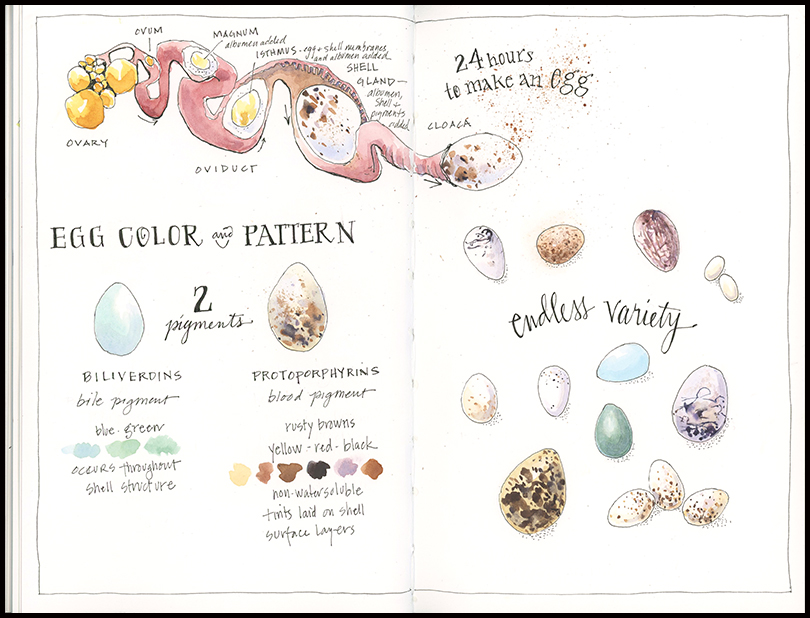 OVUM
MAGNUM
albumen added
ISTHMUS - egg + shell membranes,
and albumen added
SHELL
GLAND—
albumen,
Shell +
pigments
added
OVARY
OVIDUCT
CLOACA
24 hours
to make an egg
EGG COLOR and PATTERN
2
pigments
BILIVERDINS
bile pigment
blue-green
OCCURS throughout
shell structure
PROTOPORPHYRINS
blood pigment
rusty browns
yellow - red - black
non-watersoluble
tints laid on shell
surface layers
endless variety